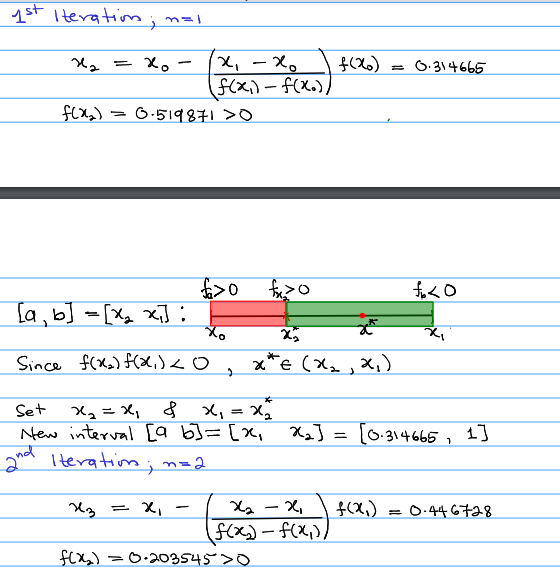 1st Iteration; n=1
x₂ = x₀ − ((x₁ − x₀)/(f(x₁) − f(x₀))) f(x₀) = 0.314665
f(x₂) = 0.519871 >0
fa>0 fx₂>0 fb<0
[a,b] = [x₂ x₁] :
x₀ x₂* x* x₁
Since f(x₂)f(x₁) < 0 , x* ∈ (x₂ , x₁)
Set x₂ = x₁ & x₁ = x₂*
New interval [a b] = [x₁ x₂] = [0.314665 , 1]
2nd Iteration; n=2
x₃ = x₁ − ((x₂ − x₁)/(f(x₂) − f(x₁))) f(x₁) = 0.446728
f(x₂) = 0.203545 >0